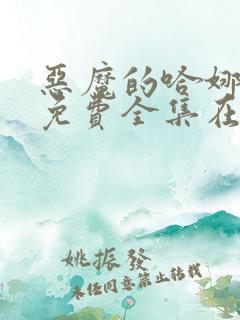 惡魔的哈娜
免費全集在
姚振發
未任同意禁止轉載